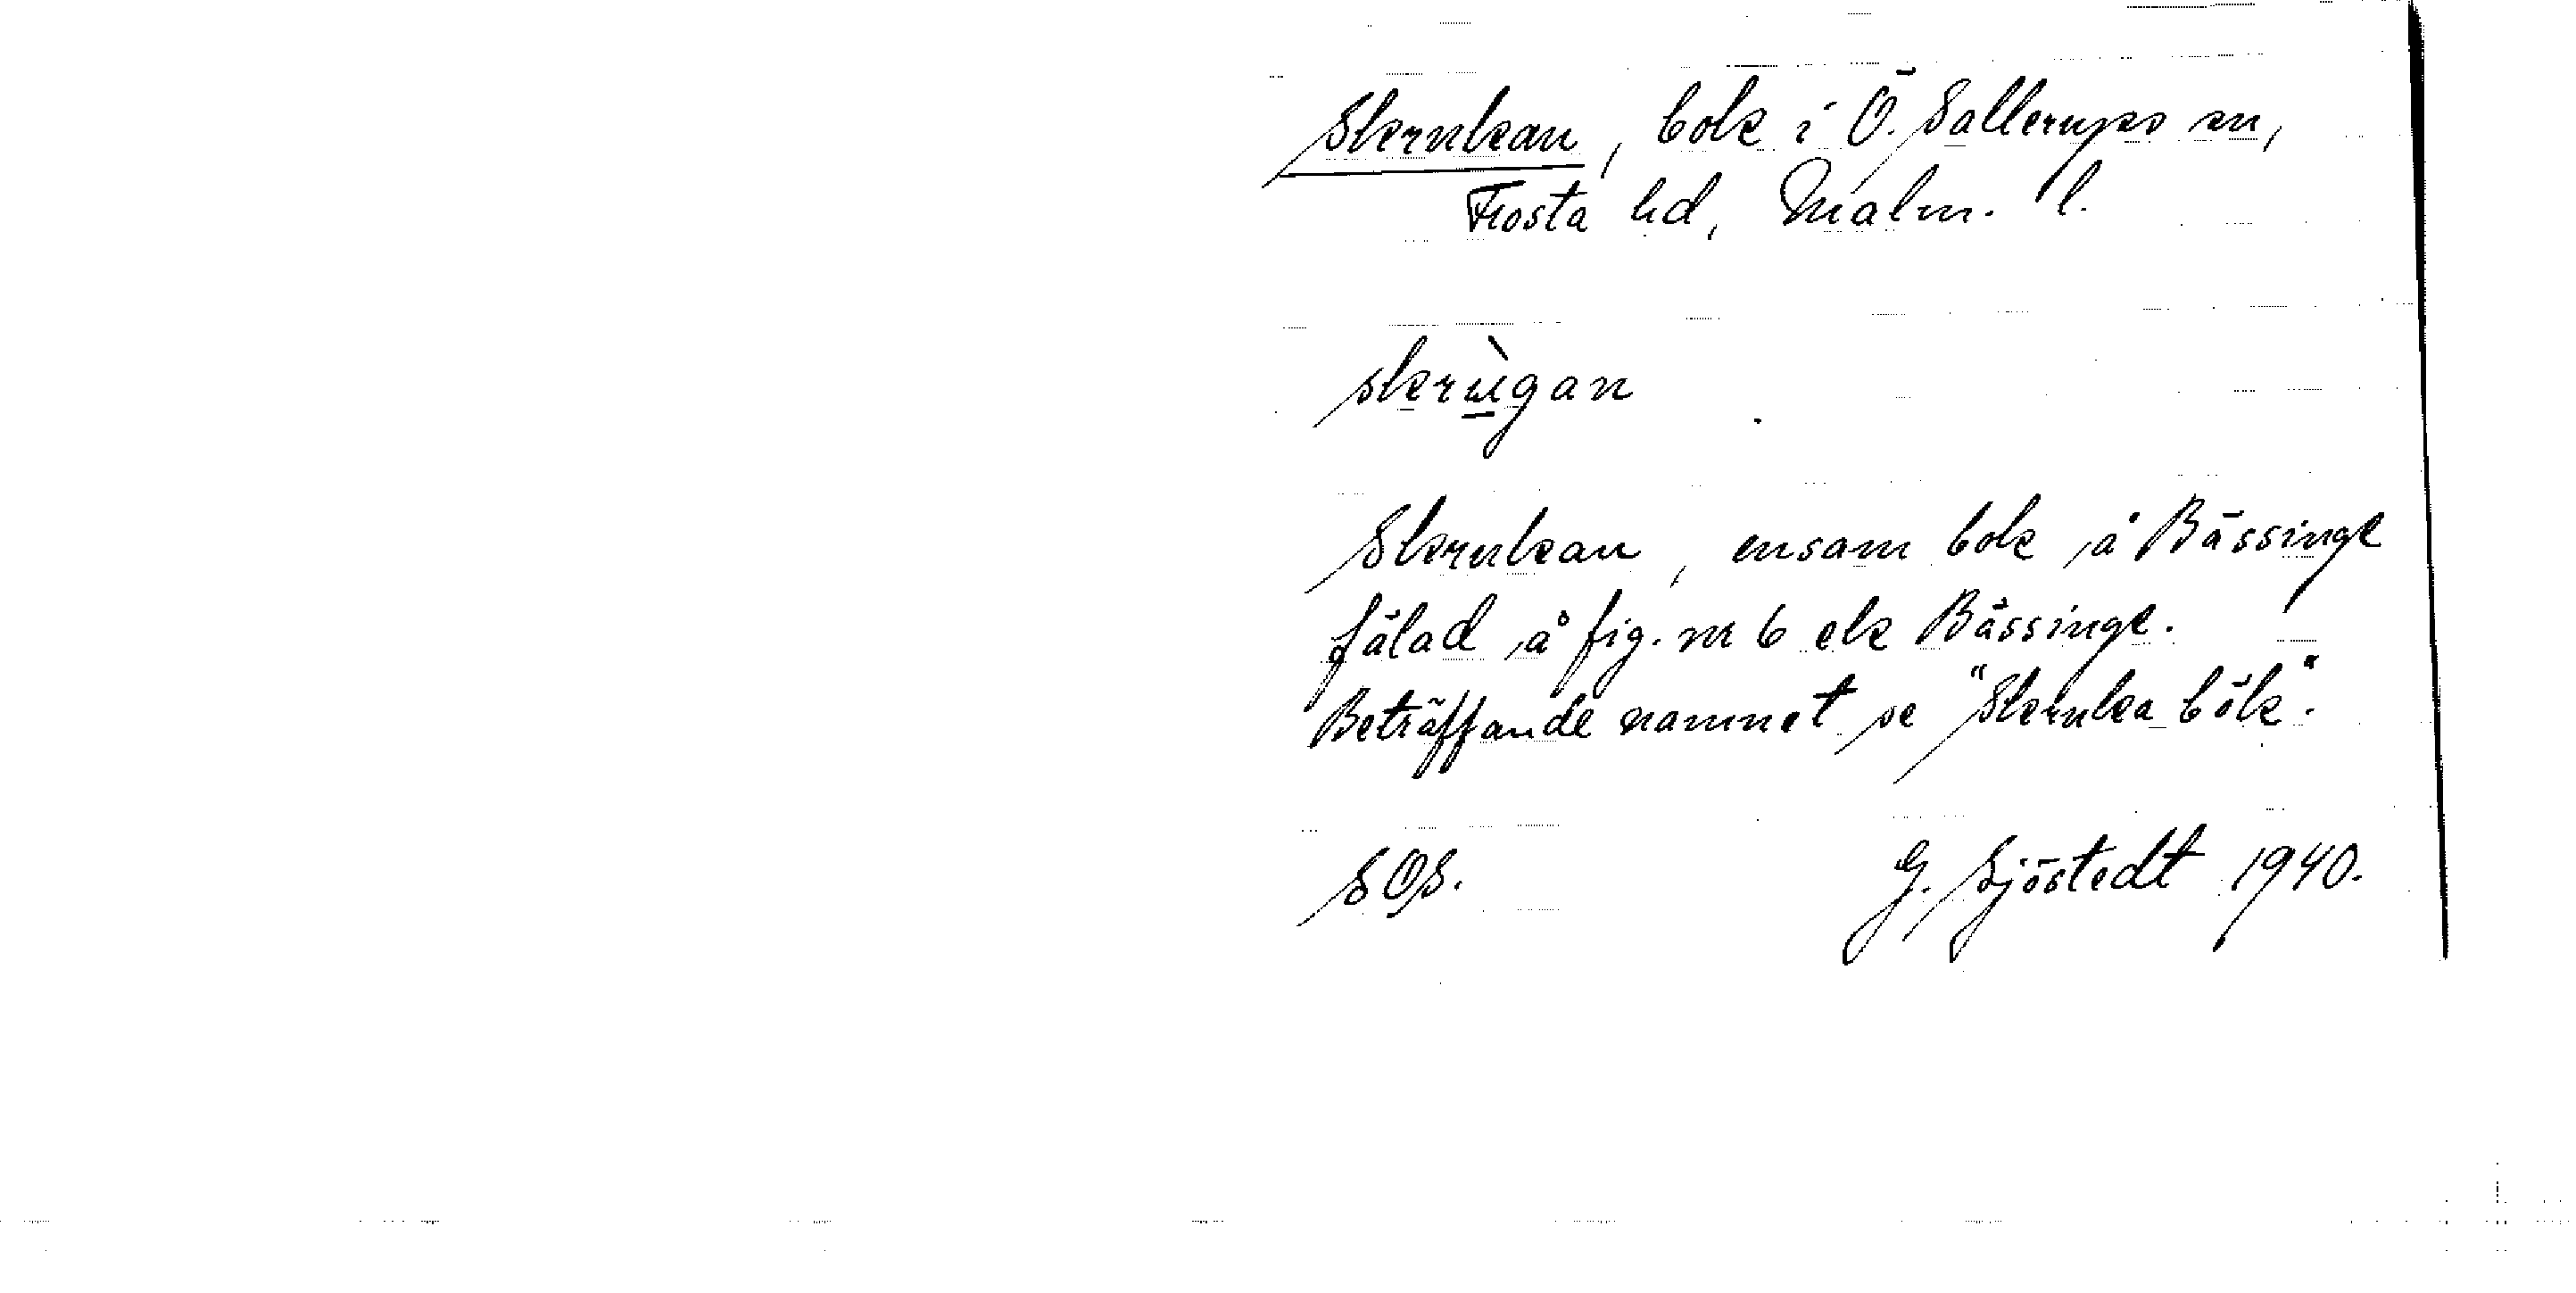 Skrukan, bok i Ö. Sallerups sn,
Frosta hd, Malm. l.
skrùgan
Skrukan, ensam bok å Bässinge
fälad å fig. nr 6 ek Bässinge.
Beträffande namnet se "Skruka bök".
SOS. G. Sjöstedt 1940.